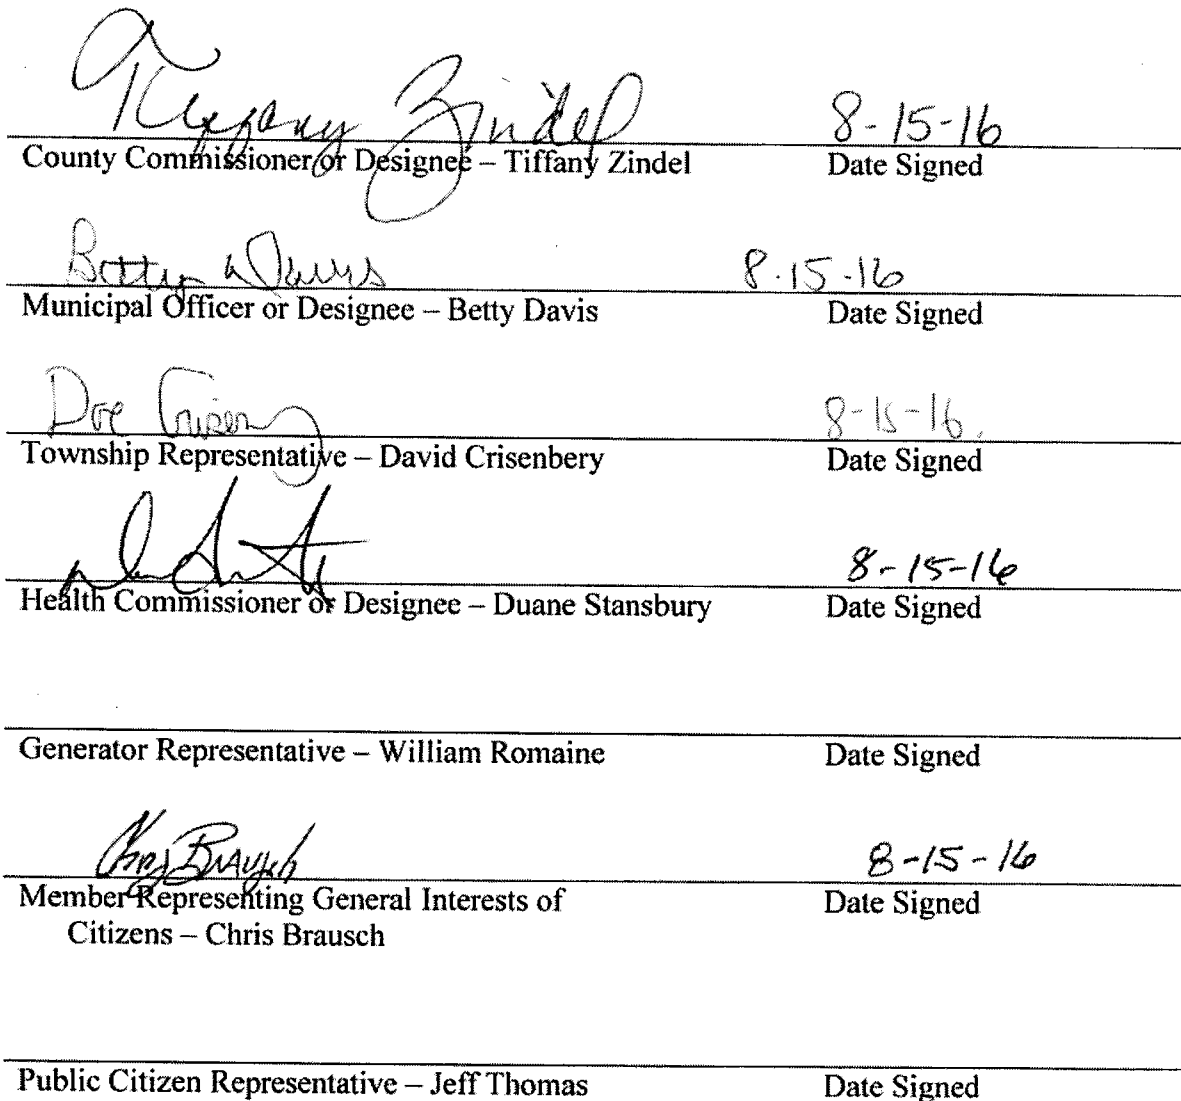 Tiffany Zindel 8-15-16
County Commissioner or Designee – Tiffany Zindel Date Signed
Betty Davis 8-15-16
Municipal Officer or Designee – Betty Davis Date Signed
8-15-16
Township Representative – David Crisenbery Date Signed
8-15-16
Health Commissioner or Designee – Duane Stansbury Date Signed
Generator Representative – William Romaine Date Signed
Chris Brausch 8-15-16
Member Representing General Interests of Date Signed
Citizens – Chris Brausch
Public Citizen Representative – Jeff Thomas Date Signed